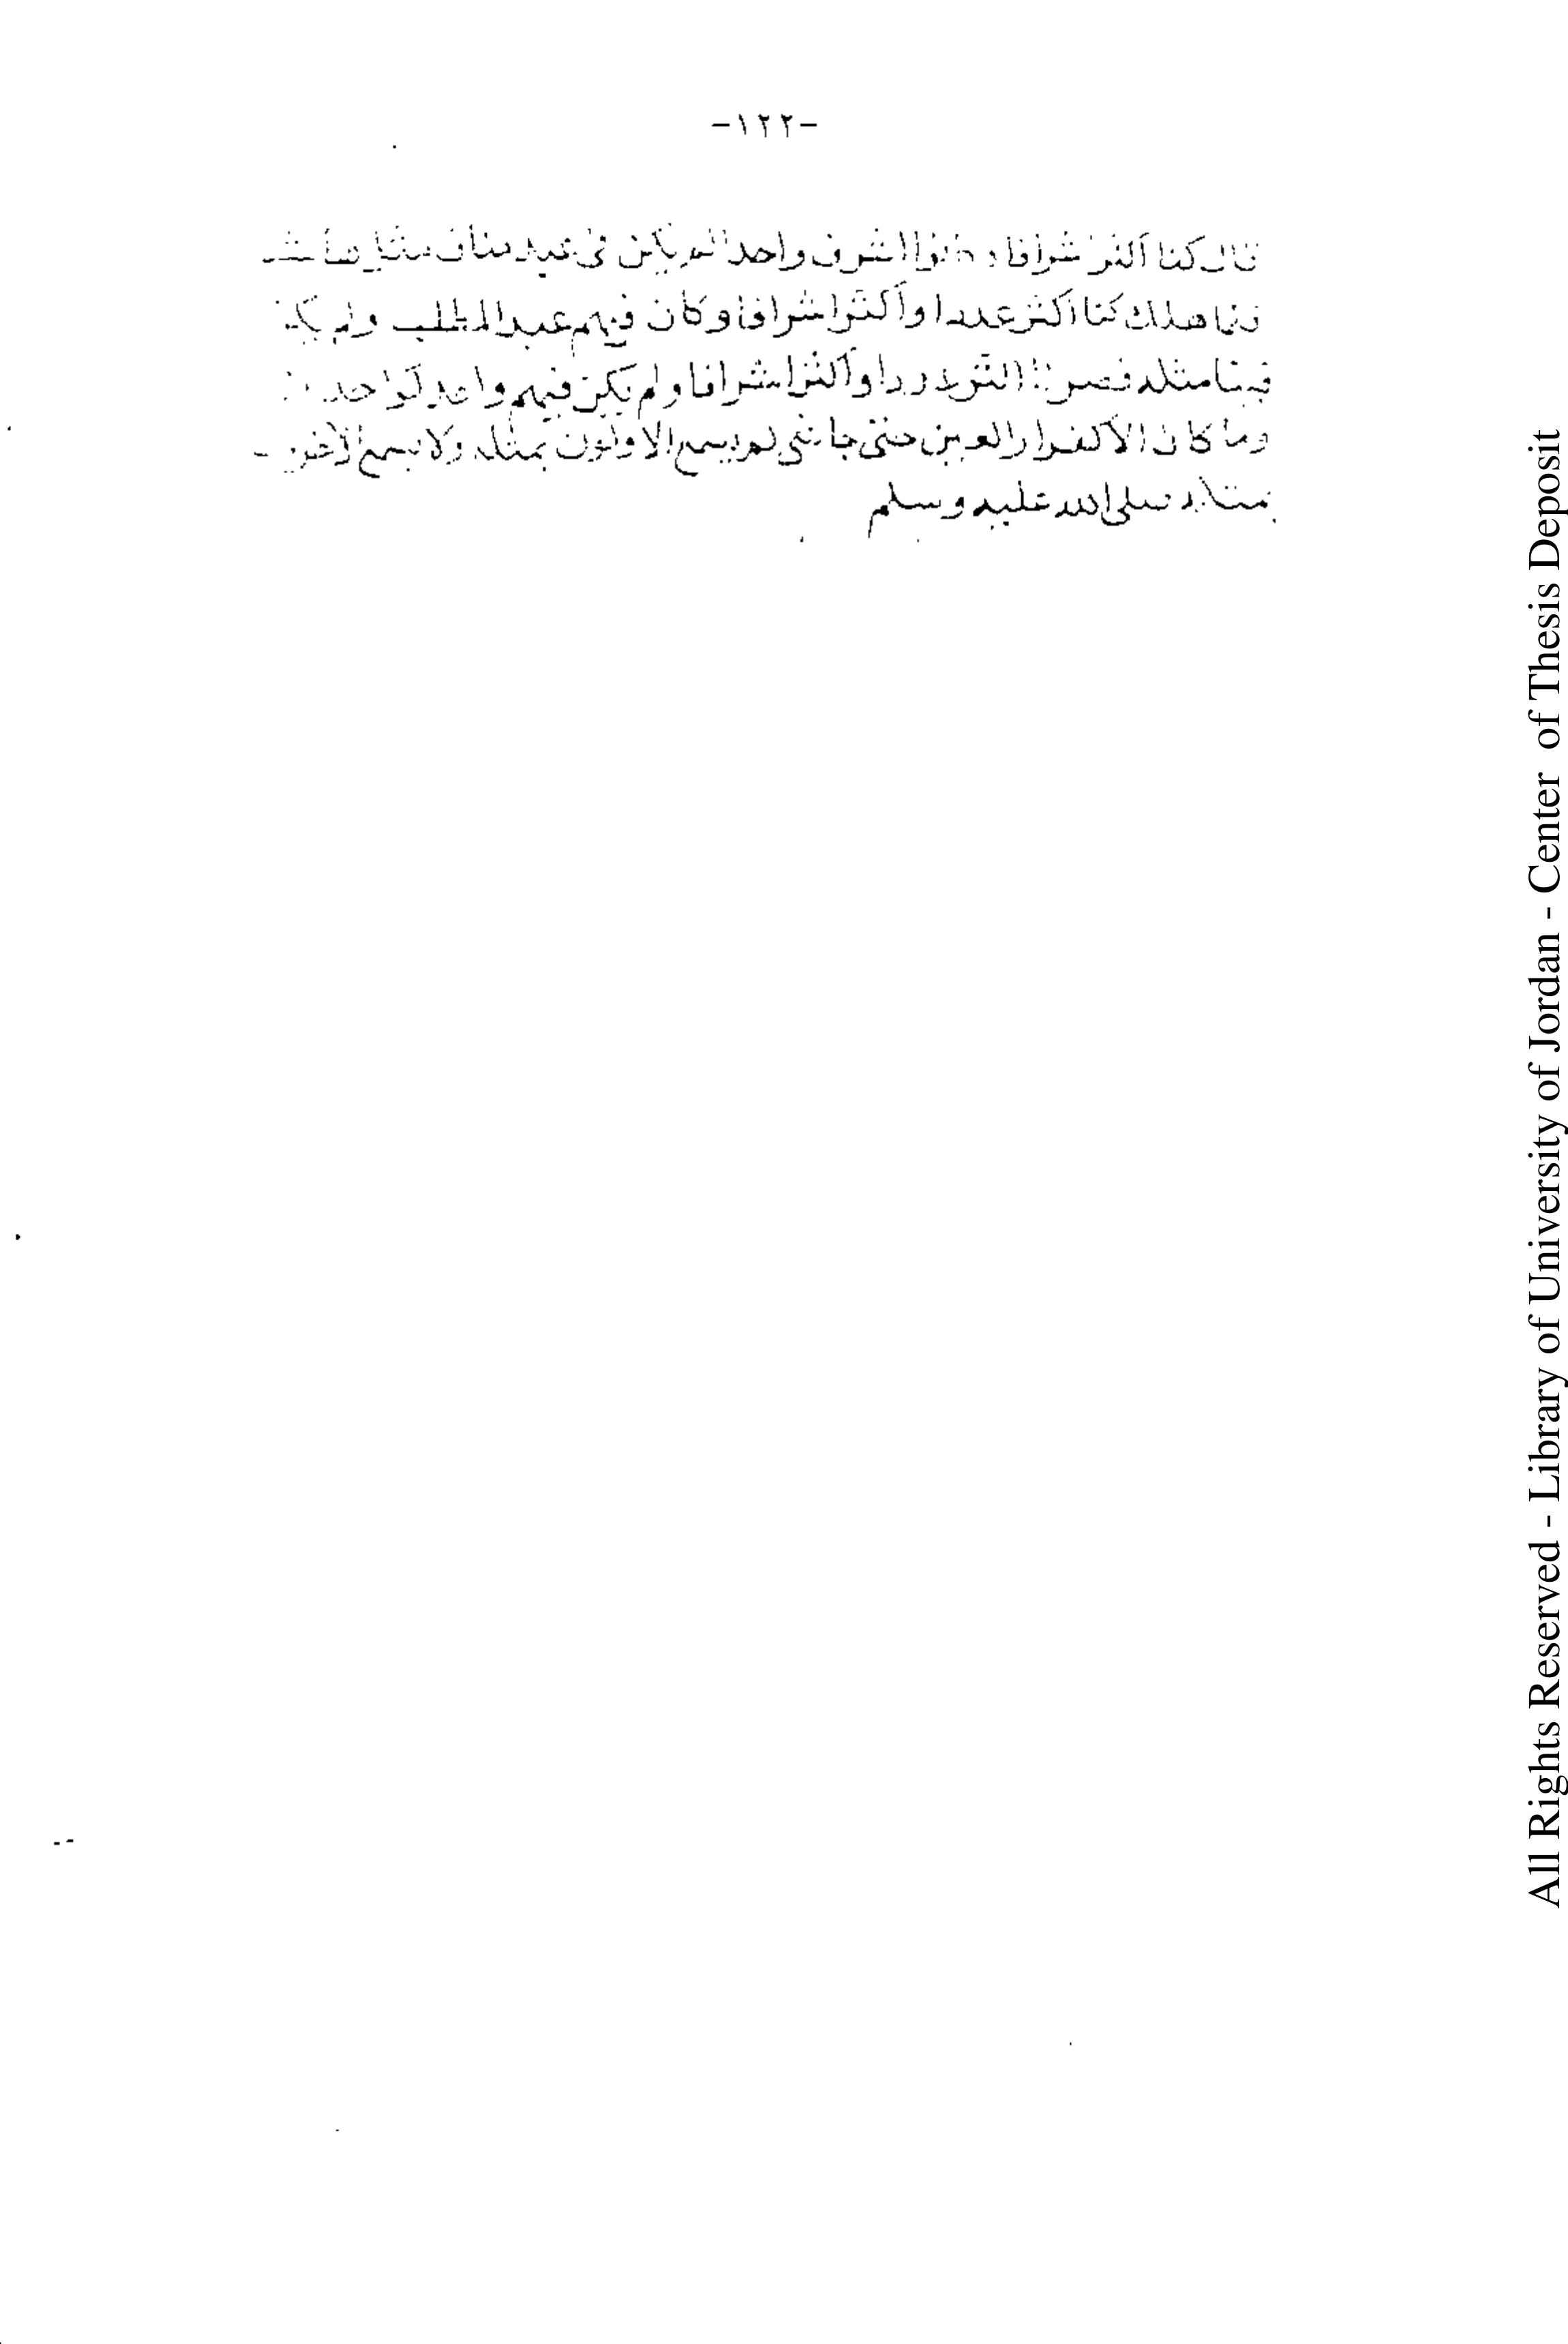 -١٢٢-
قال كنا أكثر اشرافا وكانوا اشرف واحدا لم يكن في عبد مناف مثل هاشم
فلما هلك كنا أكثر عددا وأكثر اشرافا وكان فيهم عبد المطلب ولم يكن
فينا مثله فصرنا اكثر عددا وأكثر اشرافا ولم يكن فيهم واحد كواحدنا
وما كان الا كقرار العين حتى جاء نبي لم يسمع الاولون بمثله ولا يسمع الآخرون
بمثله صلى الله عليه وسلم
All Rights Reserved - Library of University of Jordan - Center of Thesis Deposit